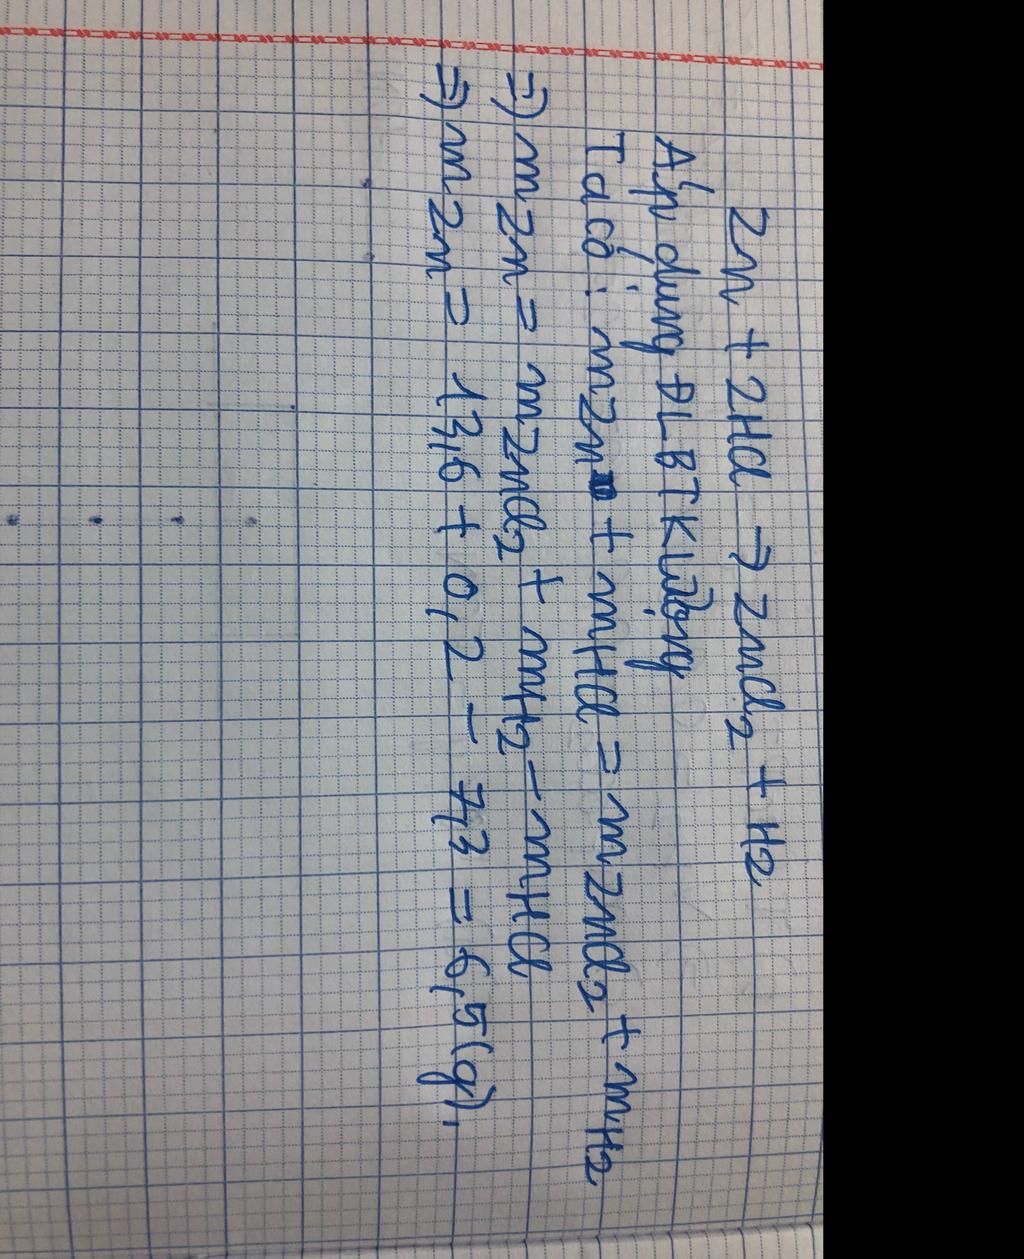 Zn + 2HCl → ZnCl2 + H2
Áp dụng ĐLBTKLượng
Ta có: mZn + mHCl = mZnCl2 + mH2
=) mZn = mZnCl2 + mH2 - mHCl
=) mZn = 13,6 + 0,2 - 7,3 = 6,5(g).